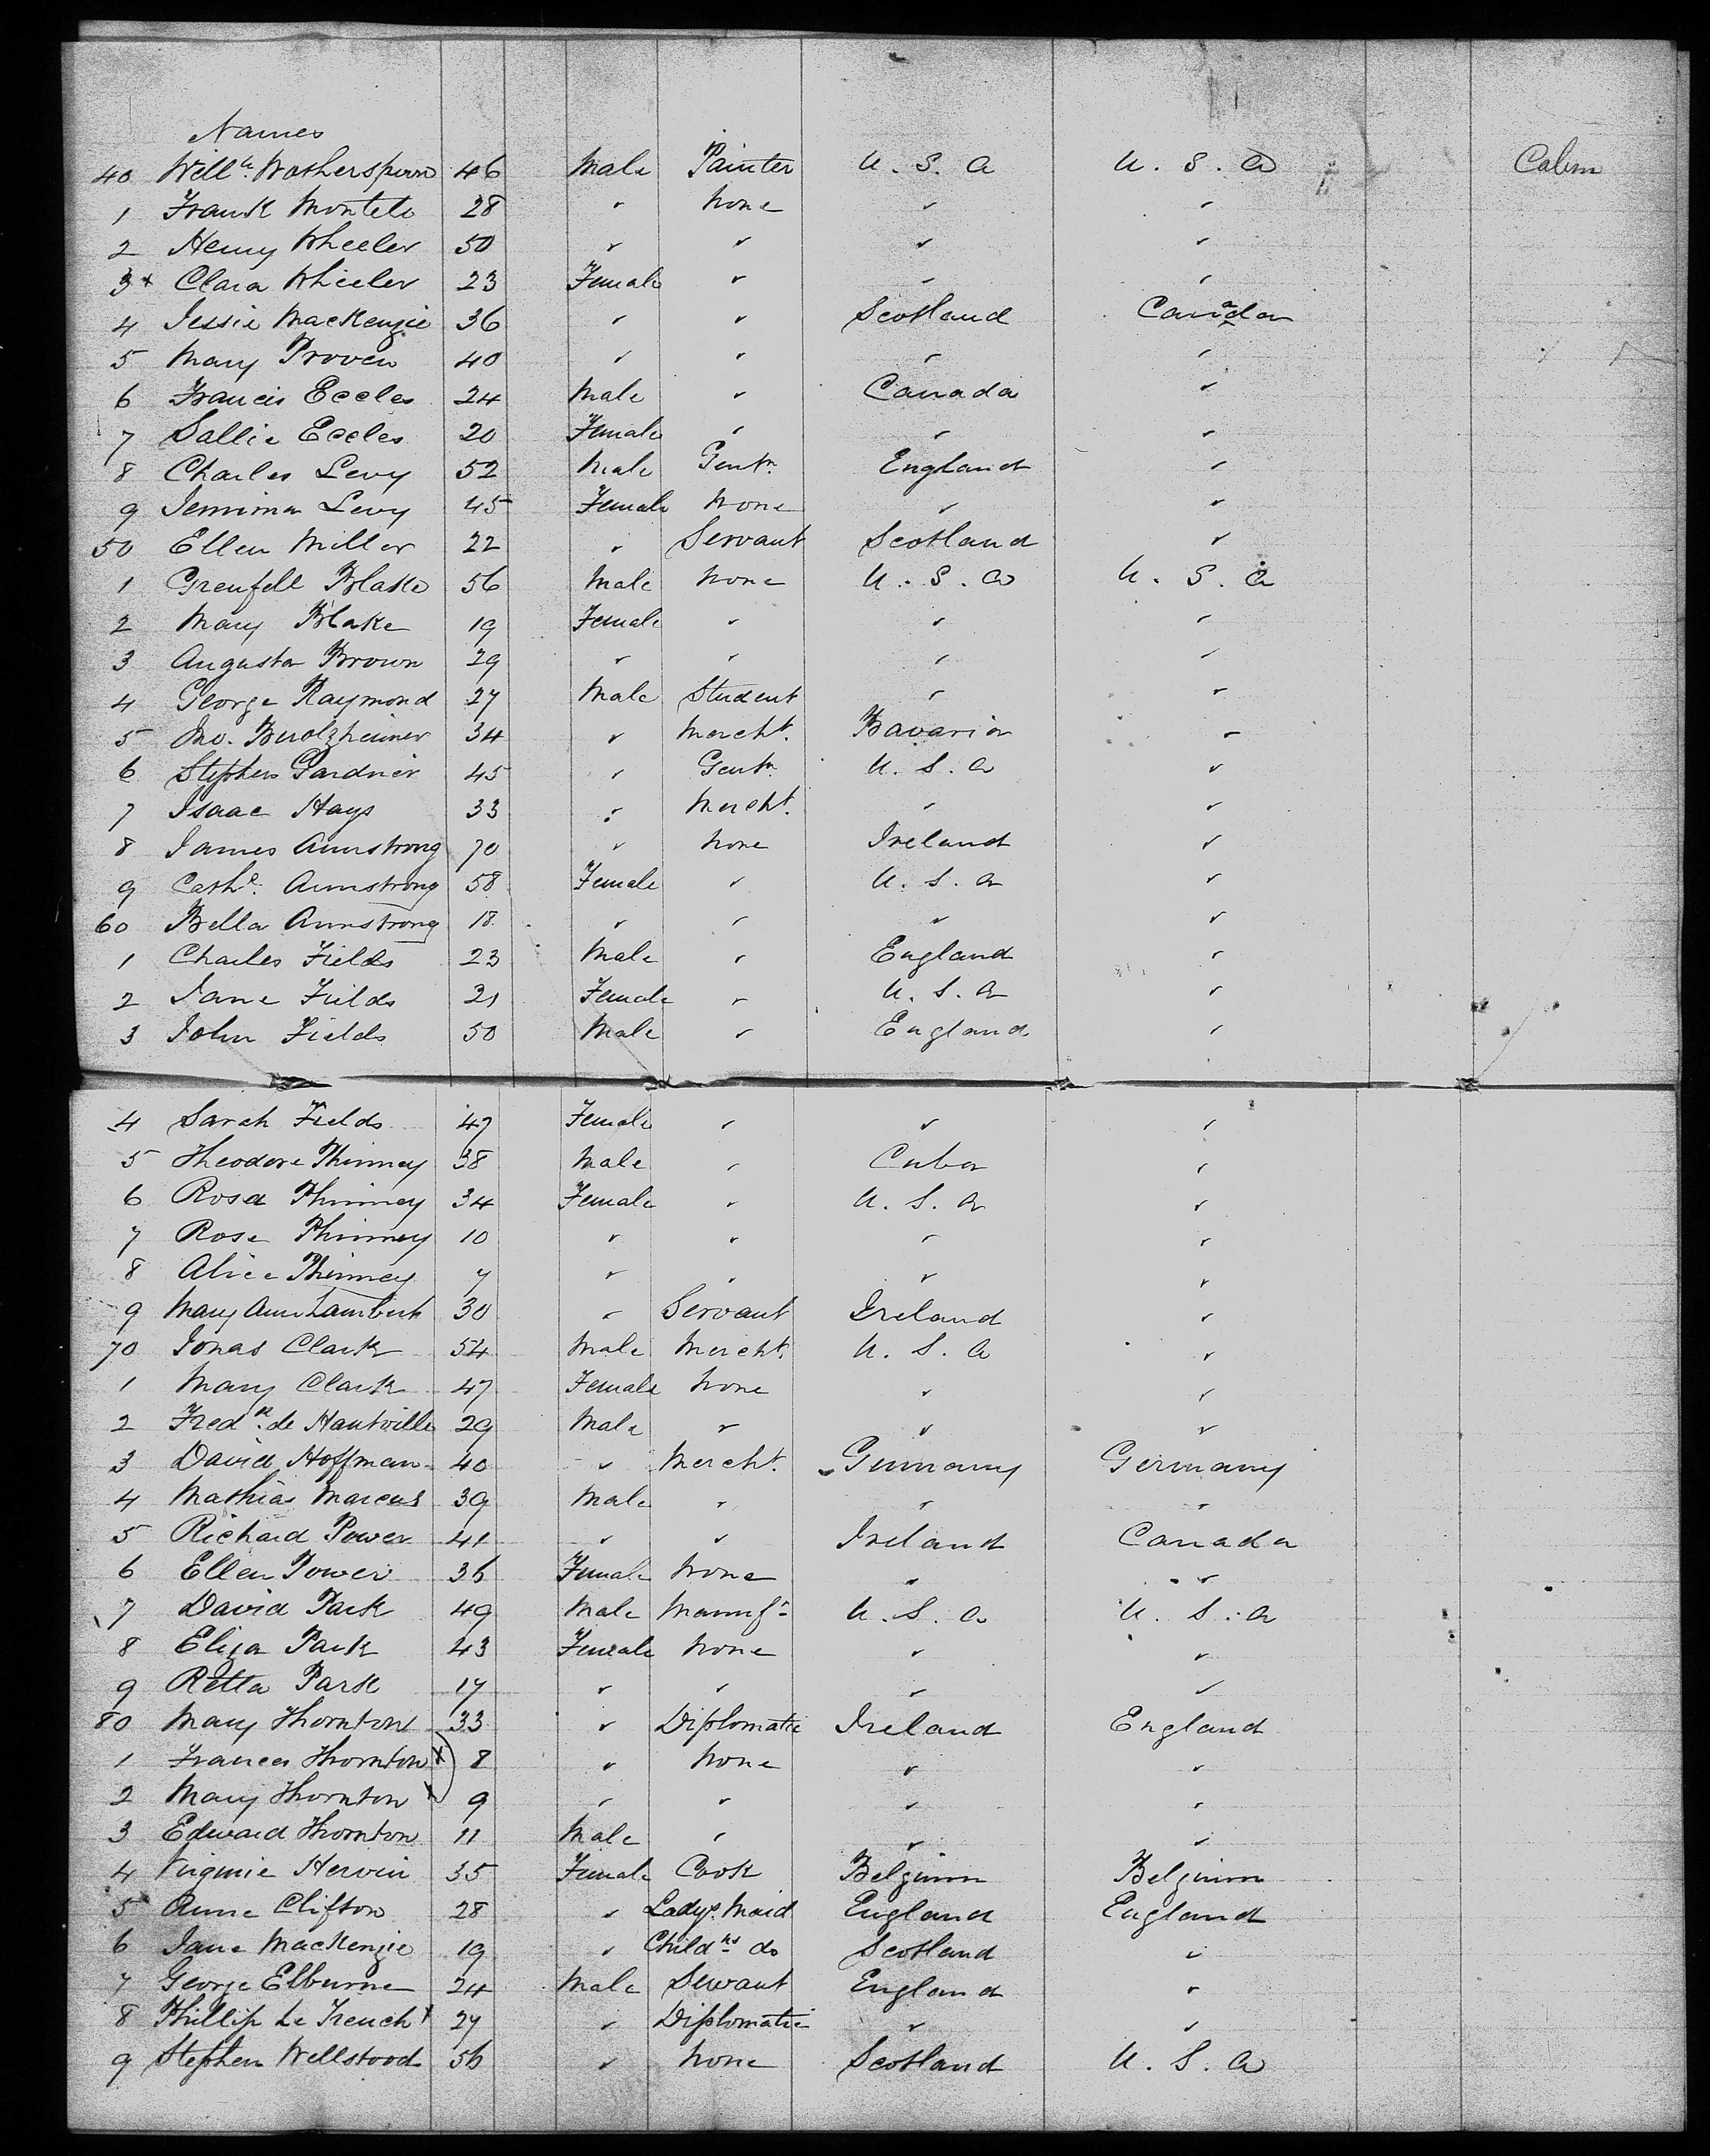 Names
40 Will^m. Wotherspoon 46 Male Painter U. S. A U. S. A Cabin
1 Frank Montele 28 " None " "
2 Henry Wheeler 50 " " " "
3 x Clara Wheeler 23 Female " " "
4 Jessie MacKenzie 36 " " Scotland Canada
5 Mary Proven 40 " " " "
6 Francis Eccles 24 Male " Canada "
7 Sallie Eccles 20 Female " " "
8 Charles Levy 52 Male Gentn. England "
9 Jemima Levy 45 Female None " "
50 Ellen Miller 22 " Servant Scotland "
1 Grenfell Blake 56 Male None U. S. A U. S. A
2 Mary Blake 19 Female " " "
3 Augusta Brown 29 " " " "
4 George Raymond 27 Male Student " "
5 Jno. Berolzheimer 34 " Mercht. Bavaria "
6 Stephen Gardner 45 " Gentn. U. S. A "
7 Isaac Hays 33 " Mercht. " "
8 James Armstrong 70 " None Ireland "
9 Cathe. Armstrong 58 Female " U. S. A "
60 Bella Armstrong 18 " " " "
1 Charles Fields 23 Male " England "
2 Jane Fields 21 Female " U. S. A "
3 John Fields 50 Male " England "
4 Sarah Fields 47 Female " " "
5 Theodore Phinney 38 Male " Cuba "
6 Rosa Phinney 34 Female " U. S. A "
7 Rose Phinney 10 " " " "
8 Alice Phinney 7 " " " "
9 Mary Ann Lambert 30 " Servant Ireland "
70 Jonas Clark 54 Male Mercht. U. S. A "
1 Mary Clark 47 Female None " "
2 Fredk. de Hautville 29 Male " " "
3 David Hoffman 40 " Mercht. Germany Germany
4 Mathias Marcus 39 Male " " "
5 Richard Power 41 " " Ireland Canada
6 Ellen Power 36 Female None " "
7 David Park 49 Male Manufr. U. S. A U. S. A
8 Eliza Park 43 Female None " "
9 Retta Park 17 " " " "
80 Mary Thornton 33 " Diplomatic Ireland England
1 Frances Thornton x 8 " None " "
2 Mary Thornton x 9 " " " "
3 Edward Thornton 11 Male " " "
4 Virginie Hervin 35 Female Cook Belgium Belgium
5 Anne Clifton 28 " Ladys Maid England England
6 Jane MacKenzie 19 " Childns do Scotland "
7 George Elburne 24 Male Servant England "
8 Phillip Le Trench x 27 " Diplomatic " "
9 Stephen Wellstood 56 " None Scotland U. S. A